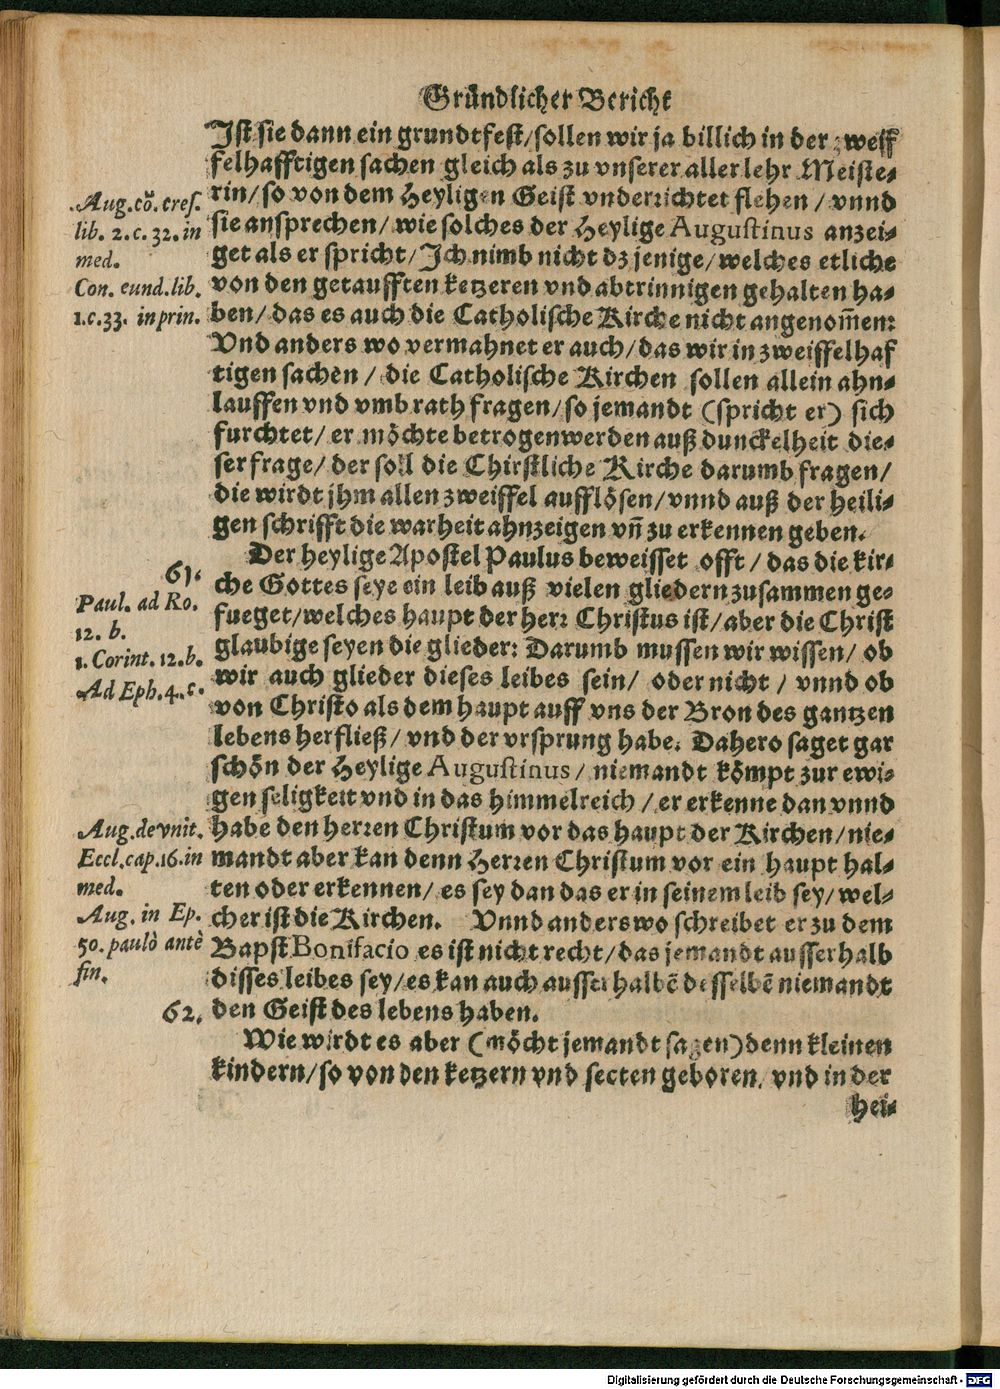 Gründlicher Bericht
Ist sie dann ein grundtfest/sollen wir ja billich in der zweif
felhafftigen sachen gleich als zu vnserer aller lehr Meiste-
rin/so von dem Heyligen Geist vnderrichtet flehen/vnnd
sie ansprechen/wie solches der Heylige Augustinus anzei-
get als er spricht/Ich nimb nicht dz jenige/welches etliche
von den getaufften ketzeren vnd abtrinnigen gehalten ha-
ben/das es auch die Catholische Kirche nicht angenom̃en:
Vnd anders wo vermahnet er auch/das wir in zweiffelhaf
tigen sachen/die Catholische Kirchen sollen allein ahn-
lauffen vnd vmb rath fragen/so jemandt (spricht er) sich
furchtet/er möchte betrogen werden auß dunckelheit die-
ser frage/der soll die Chirstliche Kirche darumb fragen/
die wirdt jhm allen zweiffel aufflösen/vnnd auß der heili-
gen schrifft die warheit ahnzeigen vñ zu erkennen geben.
Der heylige Apostel Paulus beweisset offt/das die kir-
che Gottes seye ein leib auß vielen gliedern zusammen ge-
fueget/welches haupt der herr Christus ist/aber die Christ
glaubige seyen die glieder: Darumb mussen wir wissen/ob
wir auch glieder dieses leibes sein/oder nicht/vnnd ob
von Christo als dem haupt auff vns der Bron des gantzen
lebens herfließ/vnd der vrsprung habe. Dahero saget gar
schön der Heylige Augustinus/niemandt kömpt zur ewi-
gen seligkeit vnd in das himmelreich/er erkenne dan vnnd
habe den herren Christum vor das haupt der Kirchen/nie-
mandt aber kan denn Herren Christum vor ein haupt hal-
ten oder erkennen/es sey dan das er in seinem leib sey/wel-
cher ist die Kirchen. Vnnd anderswo schreibet er zu dem
Bapst Bonifacio es ist nicht recht/das jemandt ausserhalb
disses leibes sey/es kan auch ausserhalbẽ desselbẽ niemandt
den Geist des lebens haben.
Wie wirdt es aber (möcht jemandt sagen) denn kleinen
kindern/so von den ketzern vnd secten geboren, vnd in der
hei-
Aug. cõ. cres.
lib. 2. c. 32. in
med.
Con. eund. lib.
1. c. 33. in prin.
61.
Paul. ad Ro.
12. b.
1. Corint. 12. b.
Ad Eph. 4. c.
Aug. de vnit.
Eccl. cap. 16. in
med.
Aug. in Ep.
50. paulò antè
fin.
62.
Digitalisierung gefördert durch die Deutsche Forschungsgemeinschaft - DFG